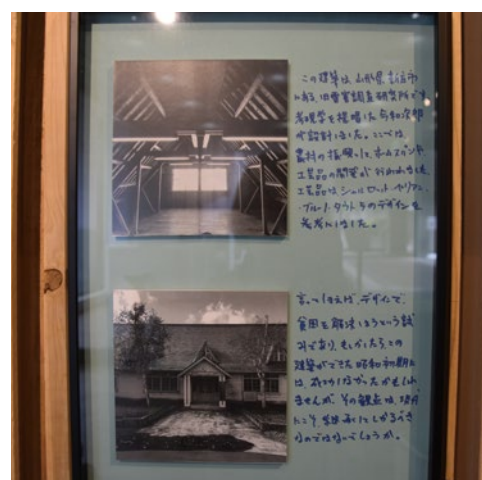 この建築は、山形県新庄市
にある、旧雪害調査研究所です
考現学を提唱した今和次郎
が設計しました。ここでは、
農村の振興に、ホームスパンや
工芸品の開発が行われました
工芸品は、シャルロット・ペリアン、
ブルーノ・タウトらのデザインを
参考にしました。
言ってしまえば、デザインで、
貧困を解決しようという試
みであり、もしかしたら、この
建築ができた昭和初期に
は、成功しなかったかもしれ
ませんが、その観点は、現代
にこそ、
なのではないでしょうか。